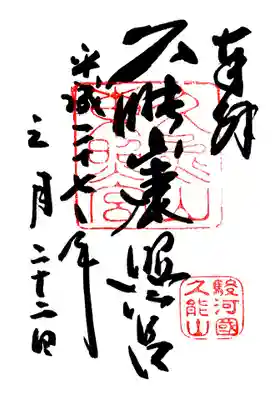 奉拝
久能山東照宮
平成二十七年
三月二十二日
駿河國
久能山